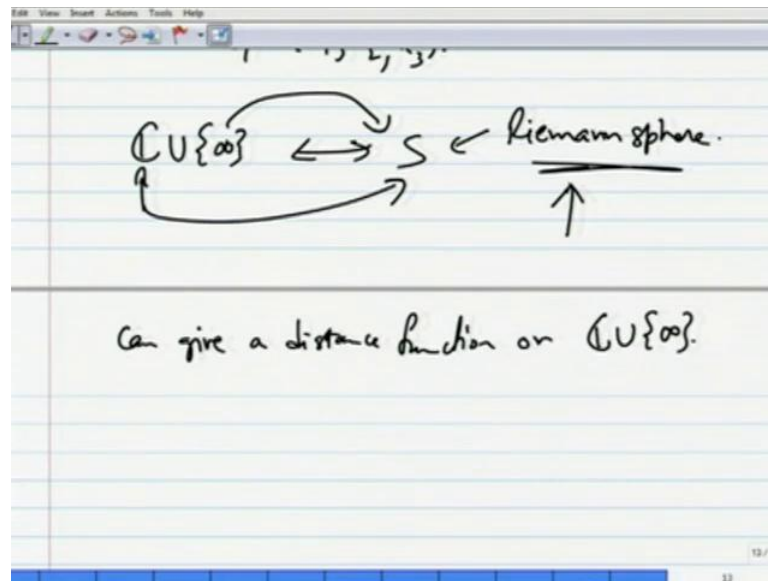 Edit View Insert Actions Tools Help
ℂ∪{∞} ↔ S ← Riemann sphere.
Can give a distance function on ℂ∪{∞}.
13/
13